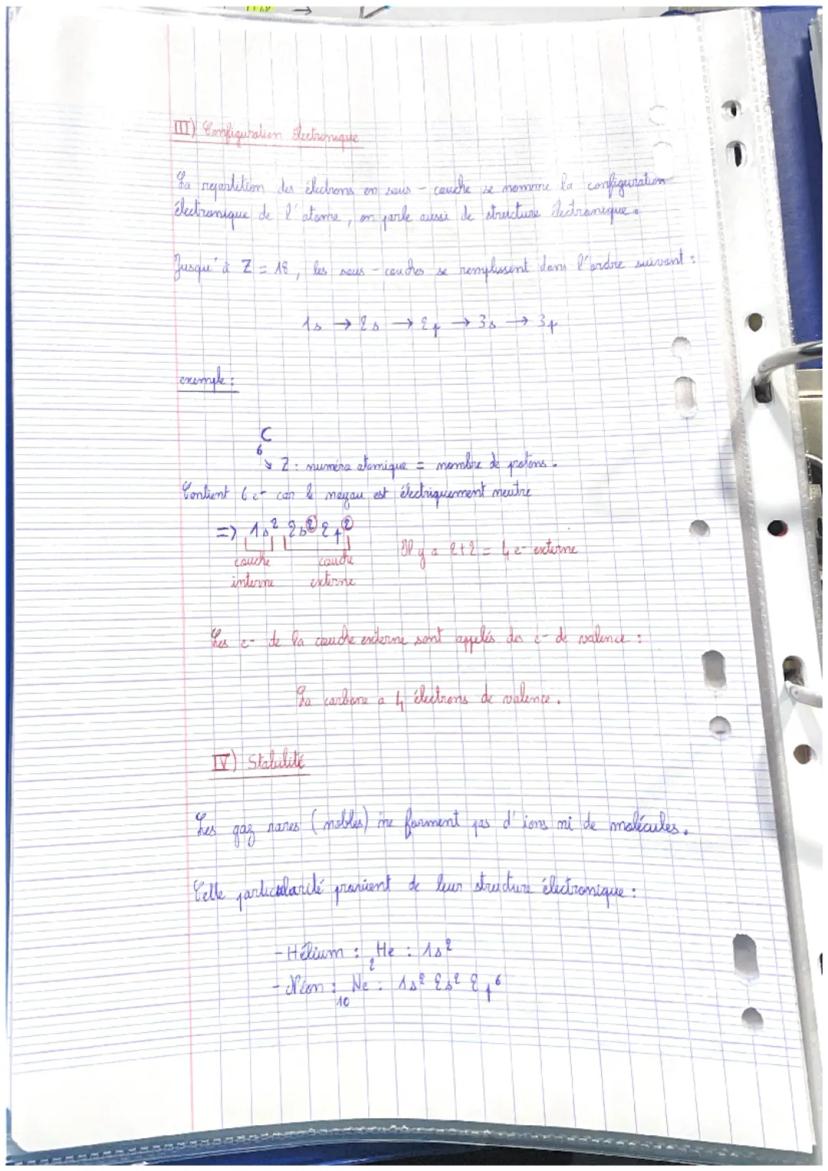 III) Configuration électronique
La repartition des électrons en sous-couche se nomme la configuration
électronique de l'atome, on parle aussi de structure électronique.
Jusqu'à Z = 18, les sous-couches se remplissent dans l'ordre suivant :
1s → 2s → 2p → 3s → 3p
exemple :
C
6
↘ Z : numéro atomique = nombre de protons.
Contient 6 e- car le noyau est électriquement neutre
=> 1s² 2s² 2p² Il y a 2+2 = 4 e- externe
couche couche
interne externe
Les e- de la couche externe sont appelés des e- de valence :
La carbone a 4 électrons de valence.
IV) Stabilité
Les gaz rares (nobles) ne forment pas d'ions ni de molécules.
Cette particularité provient de leur structure électronique :
- Hélium : ₂He : 1s²
- Néon : ₁₀Ne : 1s² 2s² 2p⁶